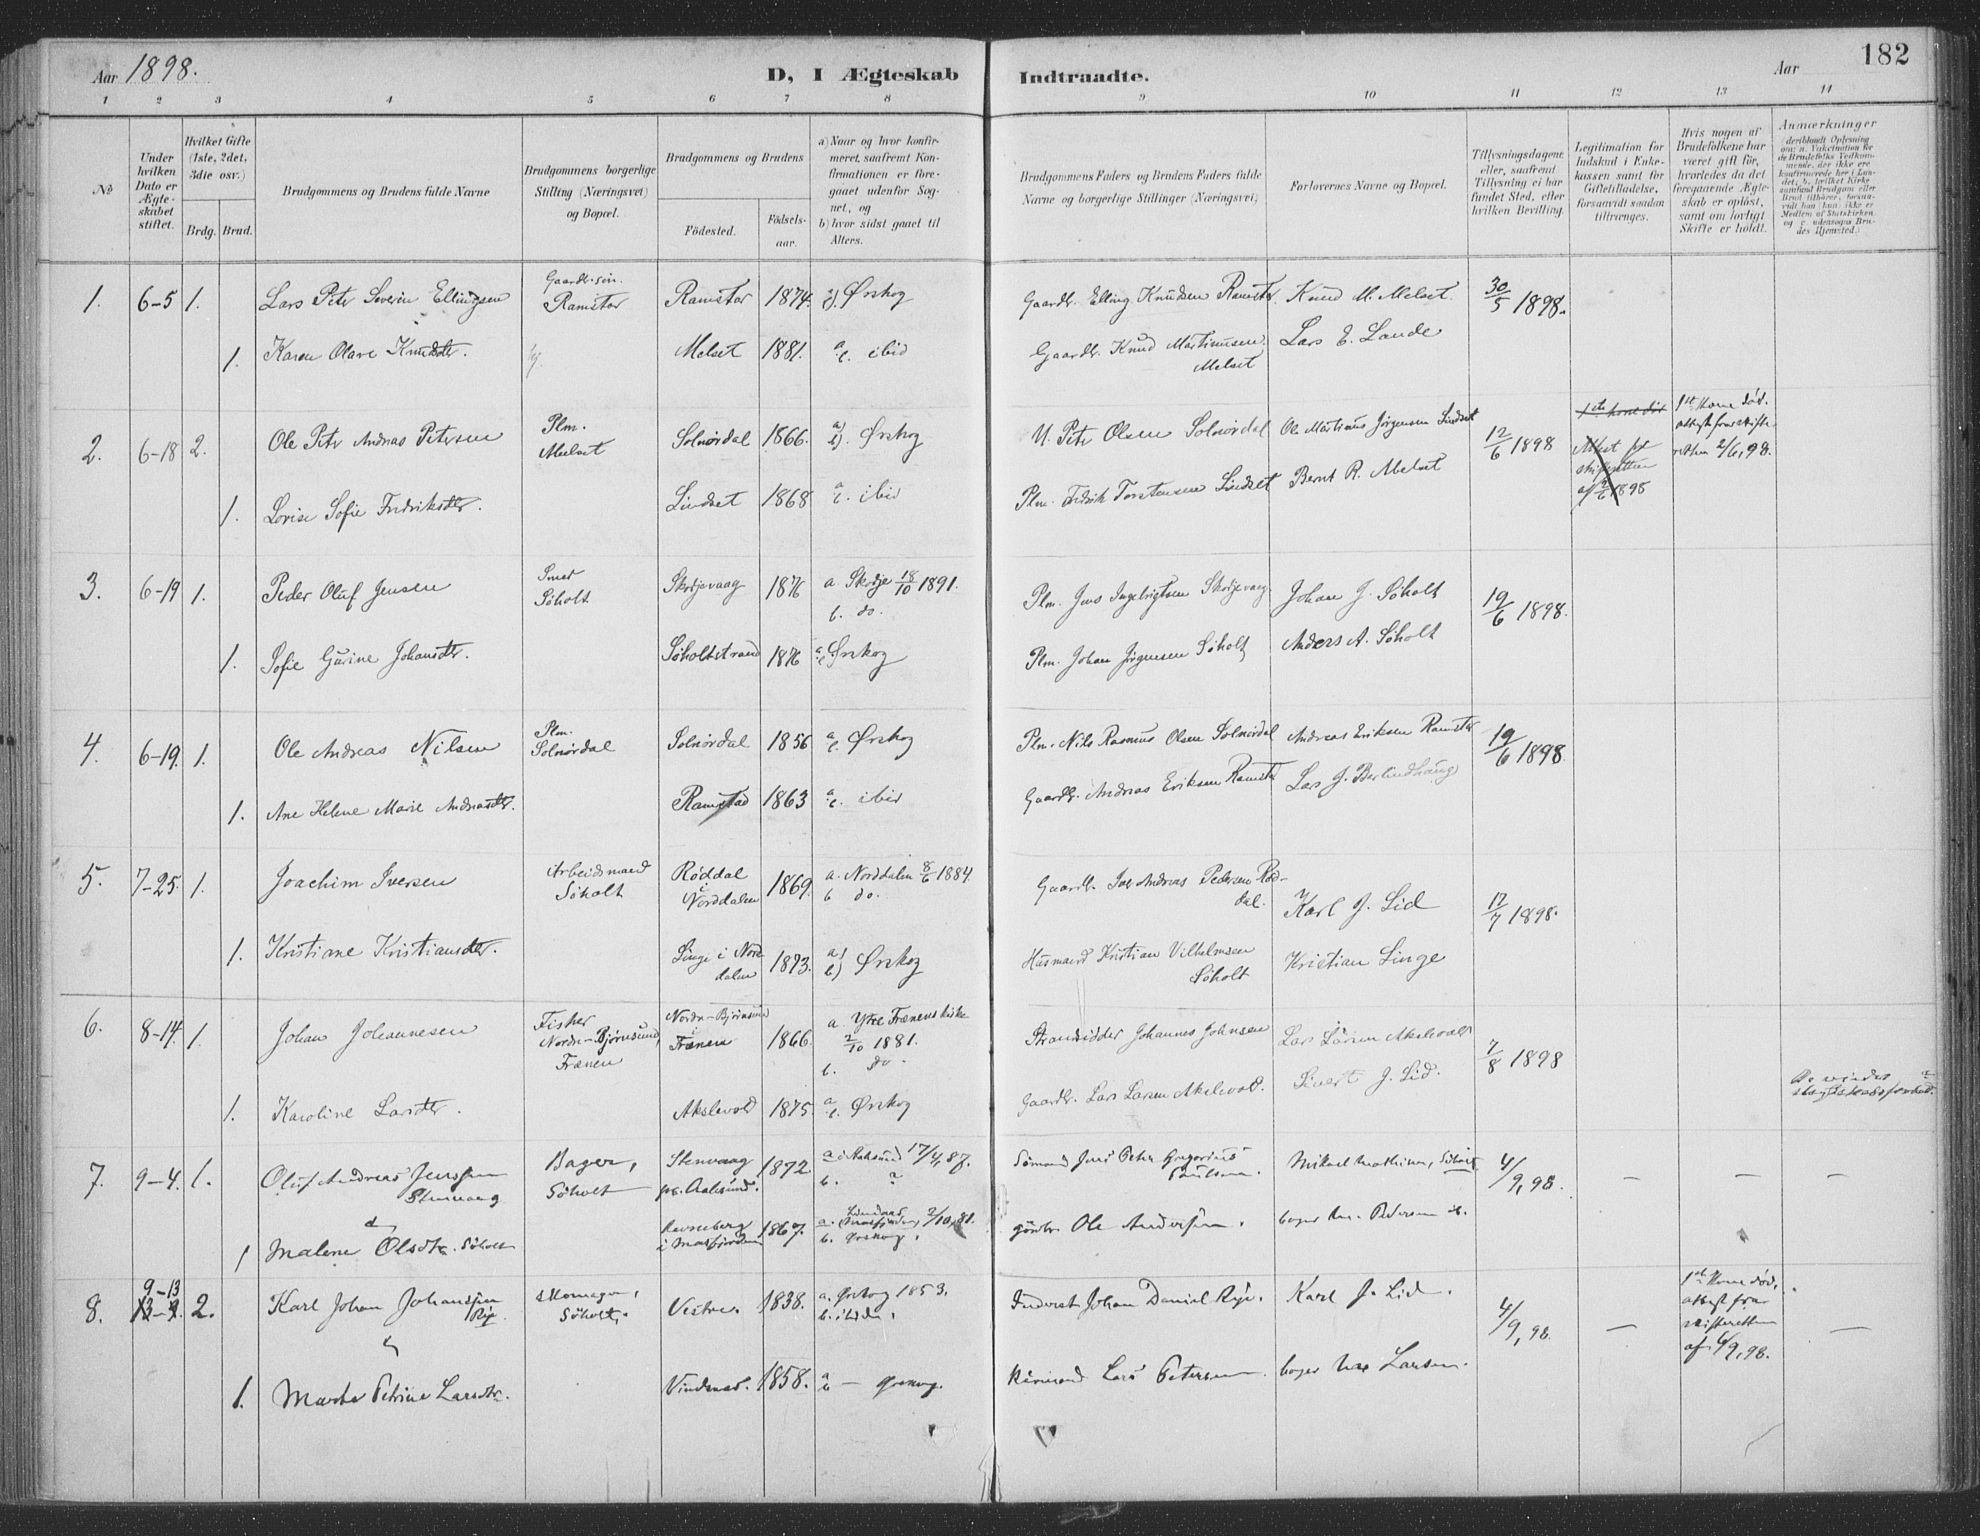 Aar 1898.
D, I Ægteskab Indtraadte.
Aar
182
1 2 3 4 5 6 7 8 9 10 11 12 13 14
No
Under hvilken Dato er Ægteskabet stiftet.
Hvilket Gifte (1ste, 2det, 3die osv.)
Brdg. Brud.
Brudgommens og Brudens fulde Navne
Brudgommens borgerlige Stilling (Næringsvei) og Bopæl.
Brudgommens og Brudens
Fødested.
Fødselsaar.
a) Naar og hvor konfirmeret, saafremt Konfirmationen er foregaaet udenfor Sognet, og
b) hvor sidst gaaet til Alters.
Brudgommens Faders og Brudens Faders fulde Navne og borgerlige Stillinger (Næringsvei)
Forlovernes Navne og Bopæl.
Tillysningsdagene eller, saafremt Tillysning ei har fundet Sted, efter hvilken Bevilling.
Legitimation for Indskud i Enkekassen samt for Giftetilladelse, forsaavidt saadan tiltrænges.
Hvis nogen af Brudefolkene har været gift før, hvorledes da det foregaaende Ægteskab er opløst, samt om lovligt Skifte er holdt.
Anmærkninger
1. 6-5 1. Lars Peter Severin Ellingsen Gaardbr. søn Ramstar Ramstar 1874. Ørskog Gaardbr. Elling Knudsen Ramstr. Knud M. Melset. 30/5 1898.
1. Karen Olave Knudsdtr. Melset 1881. a b. ibid Gaardbr. Knud Martinusen Melset Lars E. Lande
2. 6-18 2. Ole Petr Andreas Petersen Plm. Melset Solnørdal 1866. a) b). Ørskog Petr Olsen Solnørdal Ole Martinus Jørgensen Lindset 12/6 1898 1ste kone død Attest fr skifteretten af 2/6 1898 1ste Kone død. attest fra skifteretten 2/6, 98.
1. Lovise Sofie Fredriksdtr. Lindset 1868 a b. ibid Plm. Fredrik Torstensen Lindset Bernt R. Melset
3. 6-19 1. Peder Oluf Jensen Smed Søholt Skodjevaag 1876 a Skodje 18/10 1891. b. do. Plm. Jens Ingebrigtsen Skodjevaag. Johan J. Søholt 19/6 1898.
1. Sofie Gurine Johansdtr. Søholtstrand 1876 a b Ørskog Plm. Johan Jørgensen Søholt Anders A. Søholt
4. 6-19. 1. Ole Andreas Nilsen Plm. Solnørdal Solnørdal 1856 a b. Ørskog Plm. Nils Rasmus Olsen Solnørdal Andreas Eriksen Ramstr 19/6 1898
1. Ane Helene Marie Andreasdtr. Ramstad 1863 a b. ibid Gaardbr. Andreas Eriksen Ramstr Lars J. Berlindhaug
5. 7-25. 1. Joachim Iversen Arbeidsmand Søholt Røddal i Norddalen 1869. a. Norddalen 8/6 1884. b do. Gaardb. Iver Andreas Pedersen Røddal. Karl J. Lid 17/7 1898.
1. Kristiane Kristiansdtr. Linge i Norddalen 1873. a) b) Ørskog Husmand Kristian Vilhelmsen Søholt Kristian Linge
6. 8-14. 1. Johan Johannesen Fisker Nordre-Bjørnsund, Frænen Nordre-Bjørnsund Frænen 1866. a. Ytre Frænens kirke 2/10 1881. b. do. Strandsidder Johannes Johnsen Lars Larsen Akslevold 7/8 1898
1. Karoline Larsdtr. Akslevold 1875. a b. Ørskog Gaardbr. Lars Larsen Akslevold. Sivert J. Lid.
7. 9-4. 1. Oluf Andreas Jenssen Stenvaag Bager, Søholt Stenvaag pr. Aalesund. 1872 a Aalesund 17/4, 87. b. Sømand Jens Peter Gregorius Paulsen Mikael Mathisen, Søholt 4/9, 98. — — —
&
1 Malene Olsdtr. Søholt i Masfjorden 1867. a. Masfjorden, 2/10, 81. b. Ørskog. gårdbr. Ole Andersen. bager Pedersen
8. 9-13 13-9. 2. Karl Johan Johanssen Rip. Skomager, Søholt. Vestre. 1838. a. Ørskog 1853. b. Johan Daniel Rip. Karl J. Lid. 4/9, 98. — 1ste Kone død, attest fra skifteretten af 6/9, 98. —
&
1. Marte Petrine Larsdtr. Vindsnes. 1858. a b — Ørskog. Lars Petersen. bager Larsen.